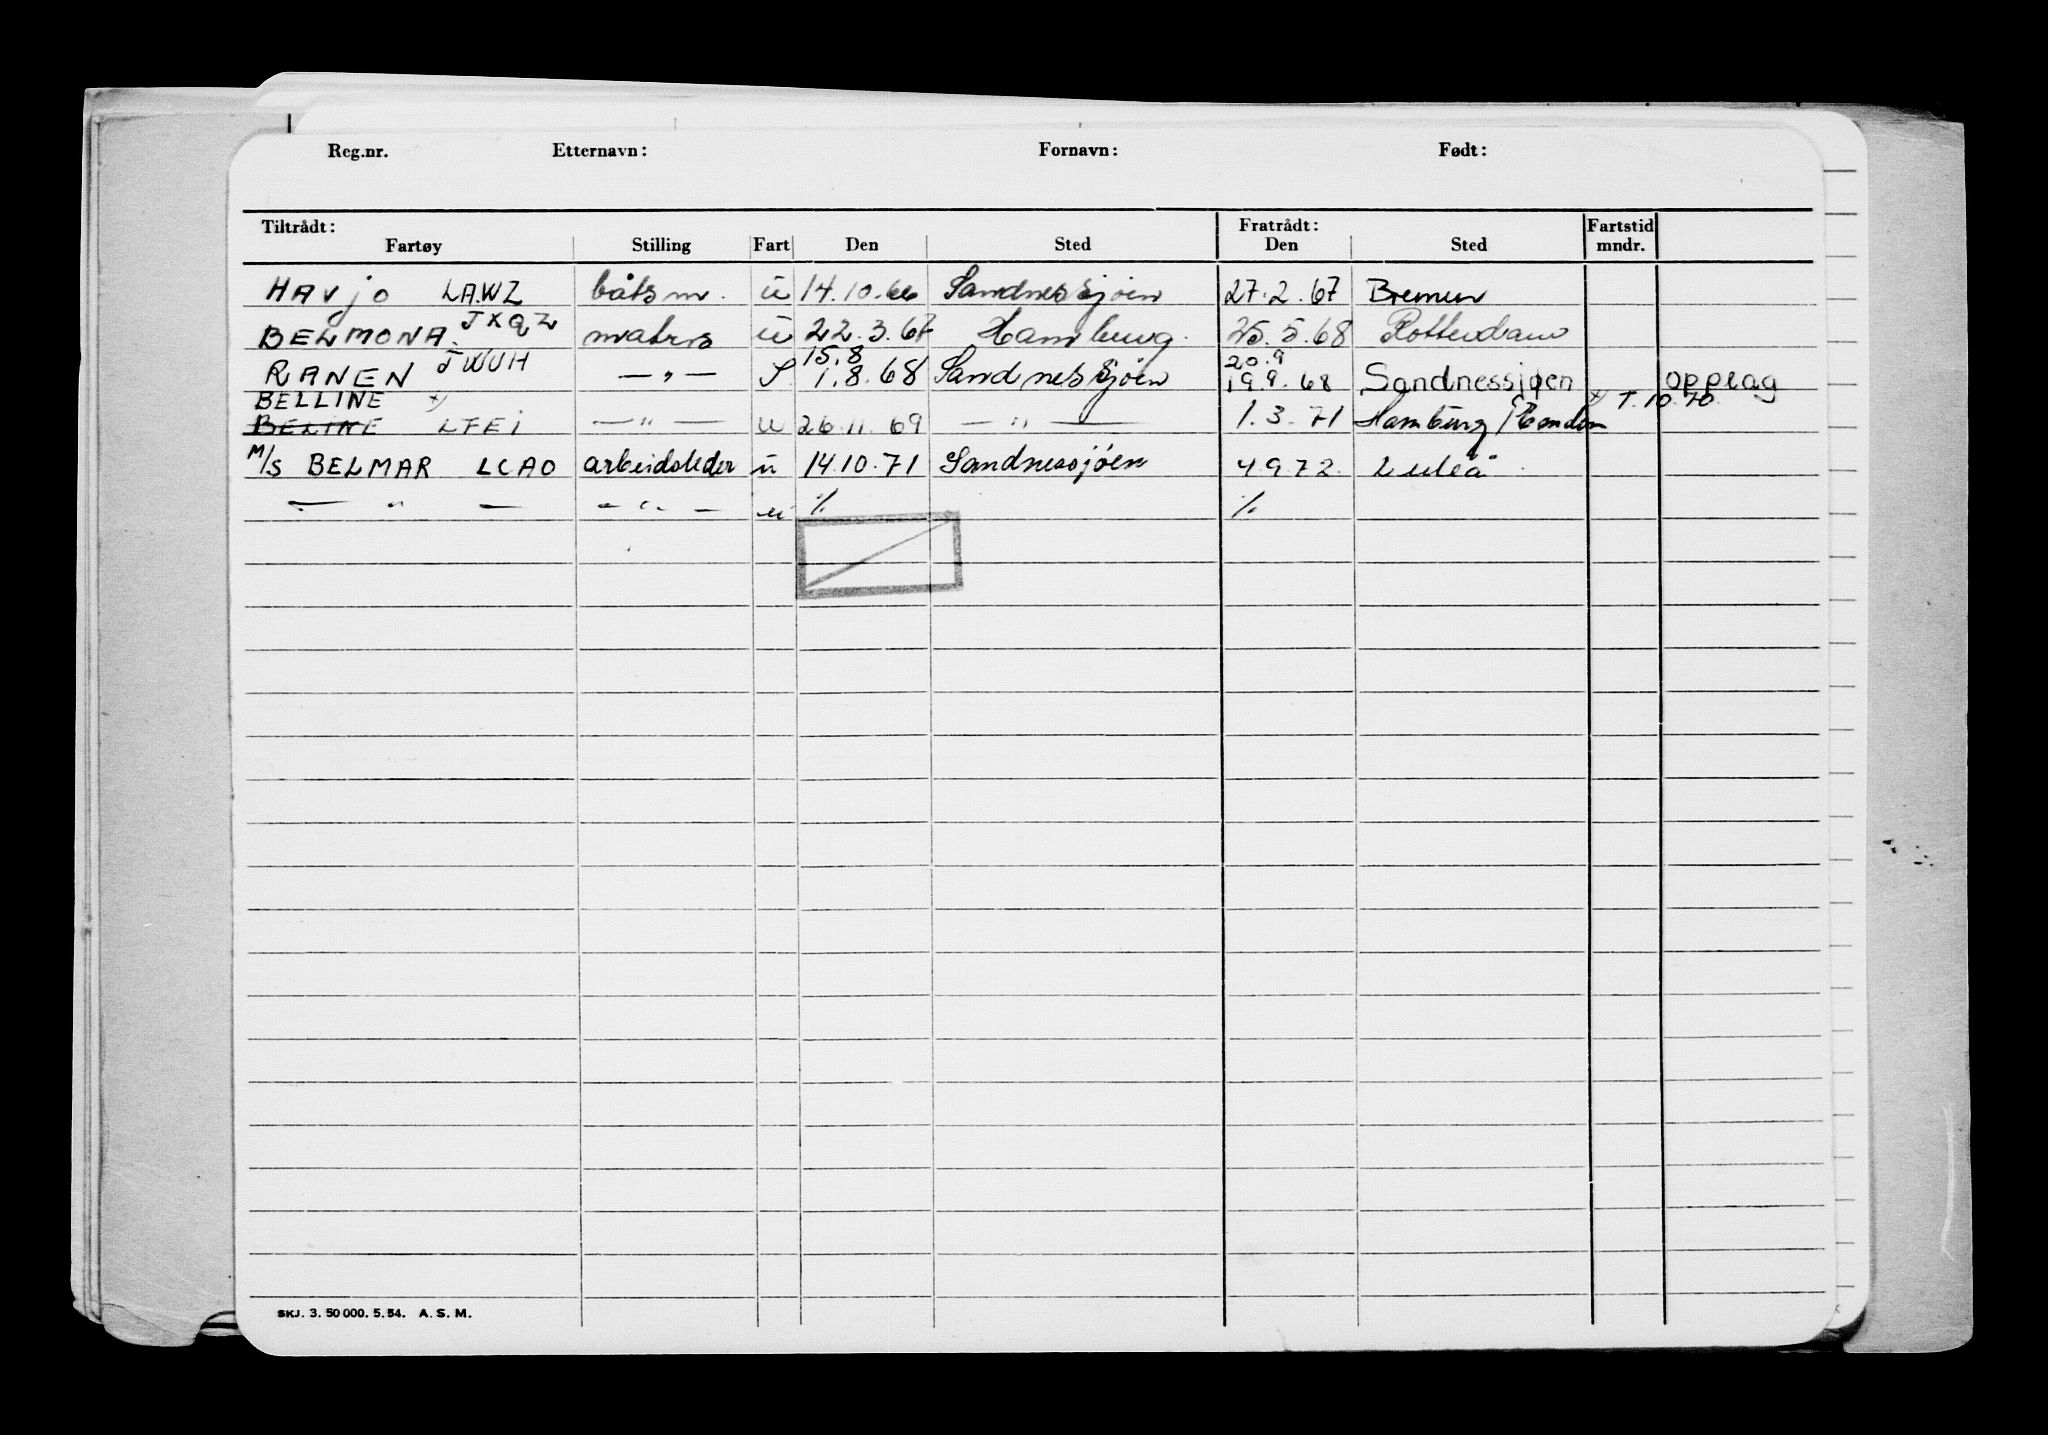 Reg.nr. Etternavn: Fornavn: Født:
Tiltrådt: Fratrådt: Fartstid
Fartøy Stilling Fart Den Sted Den Sted mndr.
HAVJO LAWZ båtsm. u 14.10.66 Sandnessjøen 27.2.67 Bremen
BELMONA. JXQZ matros u 22.3.67 Hamburg. 25.5.68 Rotterdam
15.8 20.9
RANEN JWUH — " — S 1.8.68 Sandnessjøen 19.9.68 Sandnessjøen opplag
BELLINE x) x) 1.10.70.
BELINE LFEI — " — u 26.11.69 — " — 1.3.71 Hamburg
M/S BELMAR LCAO arbeidsleder u 14.10.71 Sandnessjøen 4.9.72. Luleå
— " — — " — u % %
SKJ. 3. 50 000. 5. 54. A. S. M.